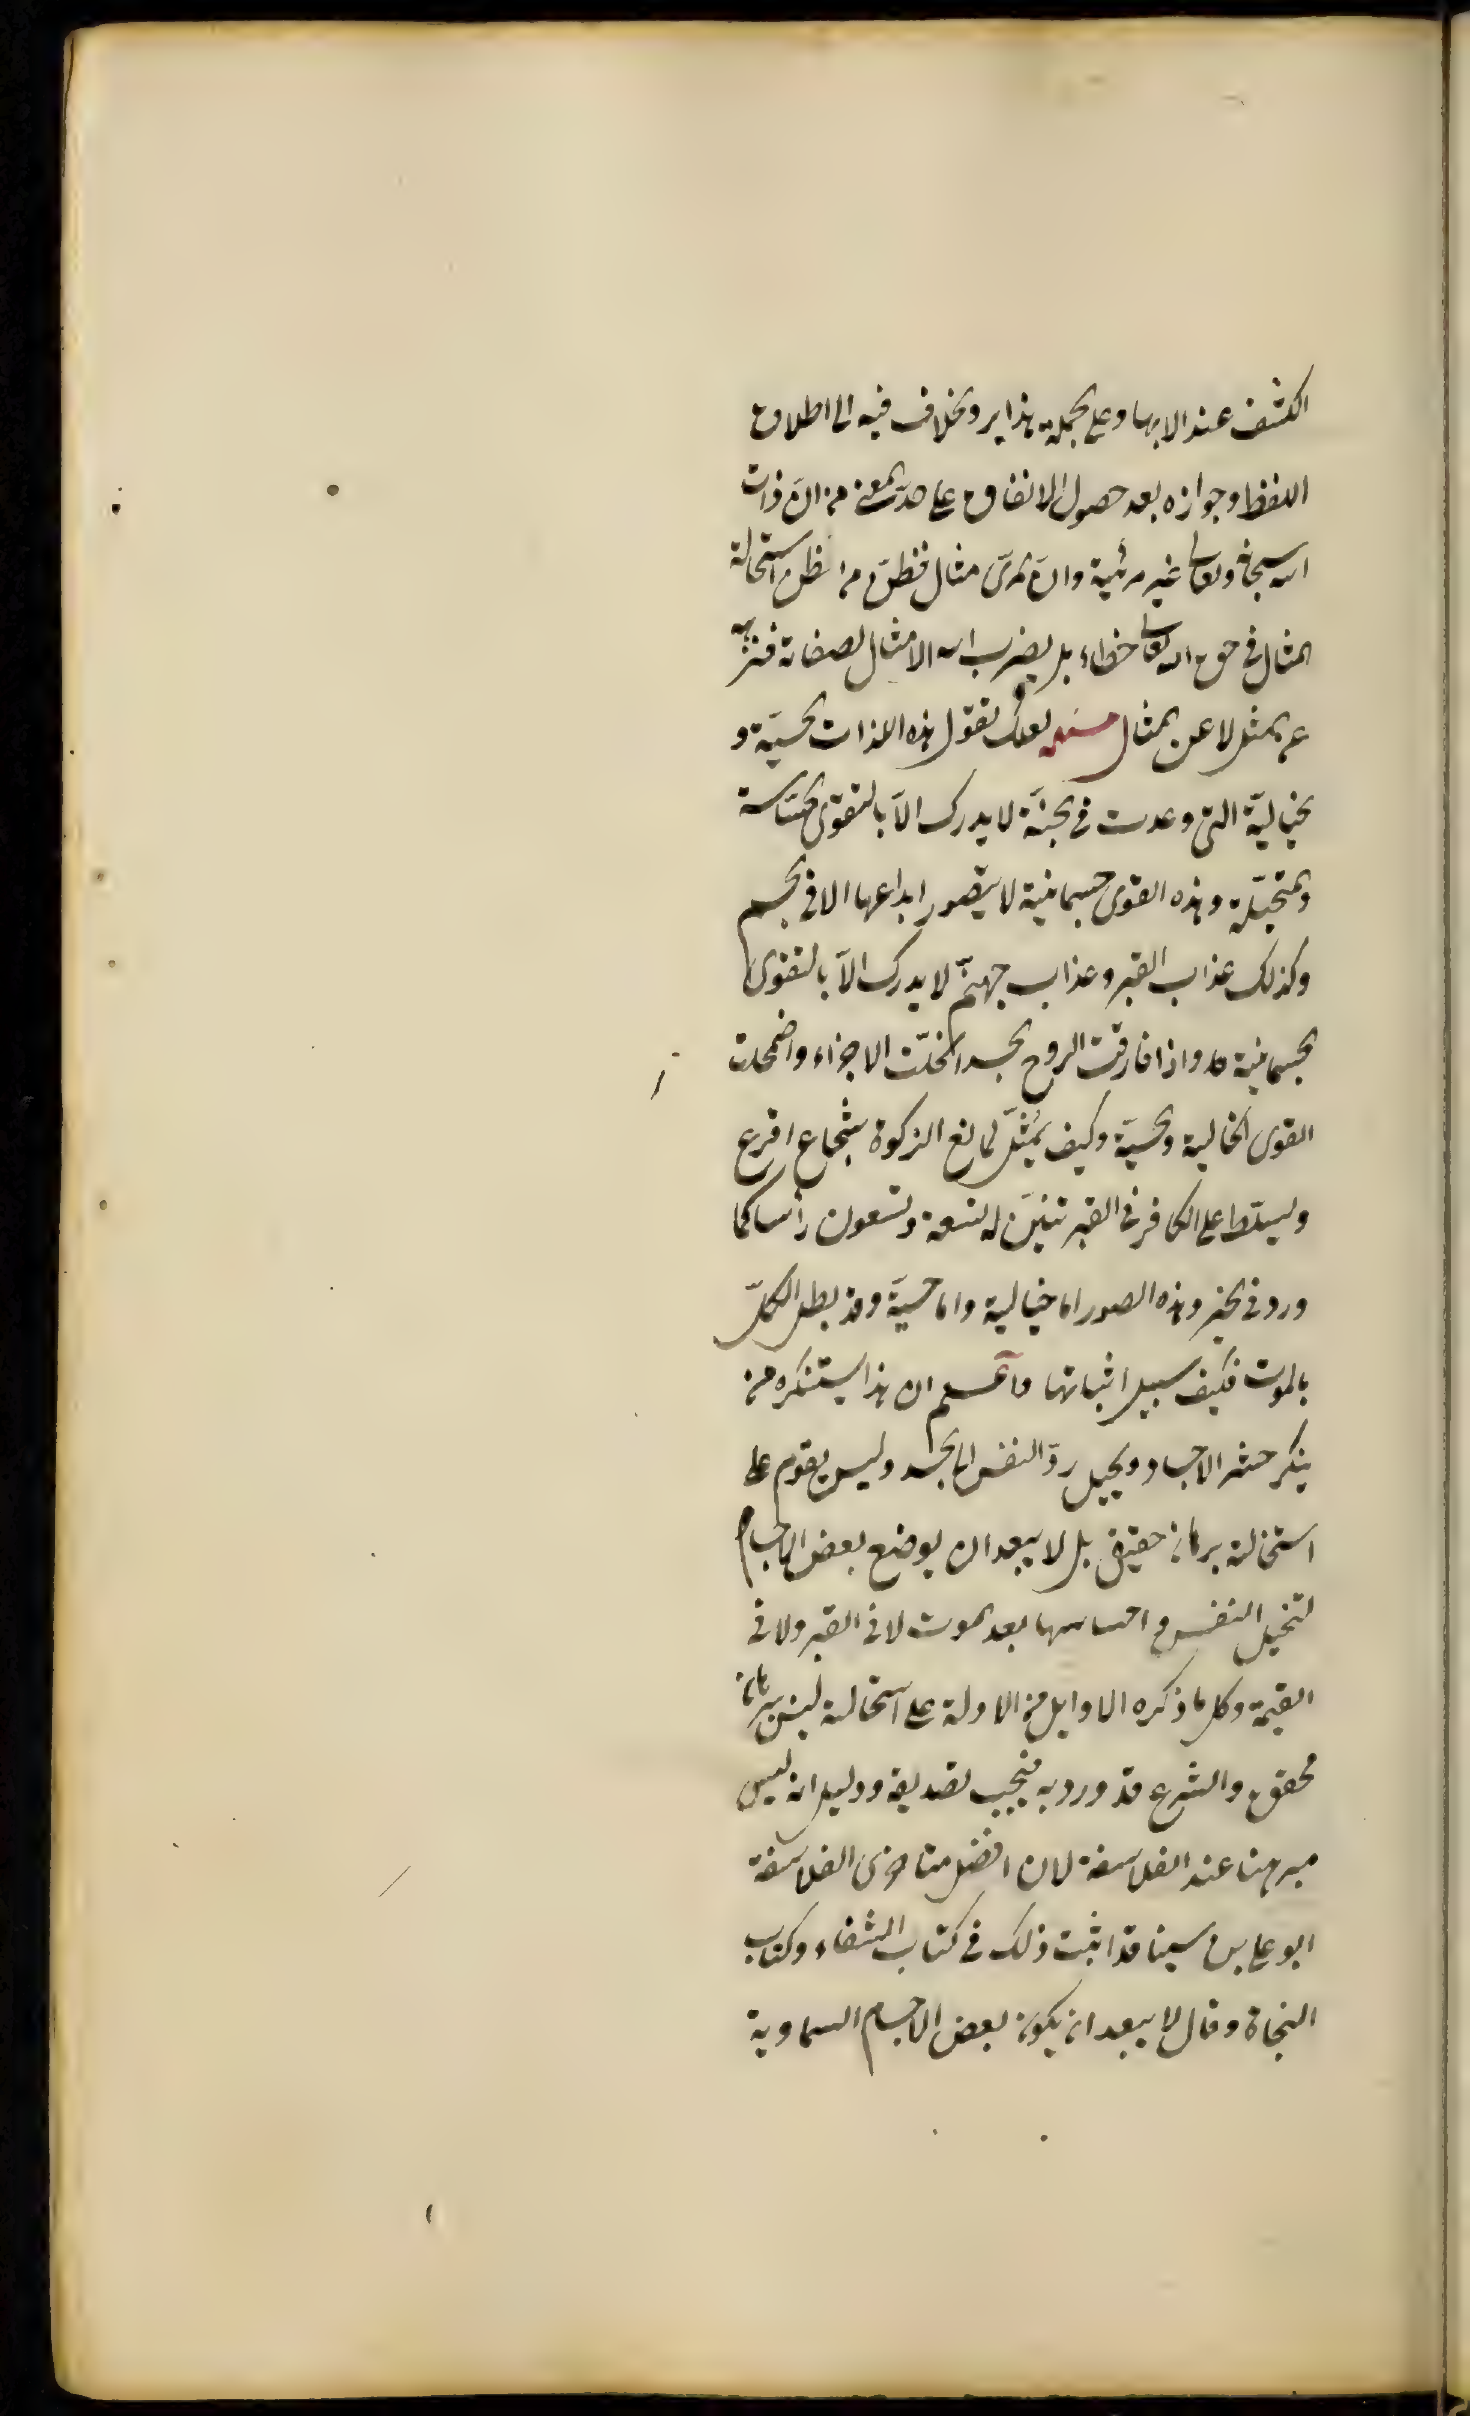 الكشف عند الابها وعلى الجملة هذا يرد الخلاف فيه الى اطلاق
اللفظ وجوازه بعد حصول الاتفاق على المعنى من ان ذات
الله سبحانه وتعالى غير مرئية وان المرئى مثال فظن من يظن استحالة
المثال فى حق الله تعالى خطاء بل يضرب الله الامثال لصفاته فننزهه
عن المثل لا عن المثال مسئله لعلك تقول هذه اللذات الحسيّة و
الخياليّة التى وعدت فى الجنّة لا يدرك الّا بالقوى الحسّاسة
والمتخيّلة وهذه القوى جسمانية لا يتصور ابداعها الا فى الجسم
وكذلك عذاب القبر وعذاب جهنّم لا يدرك الّا بالقوى
الجسمانية واذا فارقت الروح الجسد انحلّت الاجزاء واضمحلت
القوى الخالية والحسيّة وكيف يمثّل لمانع الزكوة شجاع اقرع
وليسلّط على الكافر فى القبر تنيّن له تسعة وتسعون رأسا كما
ورد فى الخبر وهذه الصور اما خيالية واما حسيّة وقد بطل الكلّ
بالموت فكيف سبيل اثباتها فاعلم ان هذا يستنكره من
ينكر حشر الاجساد ويحيل ردّ النفس الى الجسد وليس يقوم على
استحالته برهان حقيقى بل لا يبعد ان يوضع بعض الاجسام
لتخيل النفس واحساسها بعد الموت لا فى القبر ولا فى
القيمة وكل ما ذكره الاوايل من الادلة على استحالته ليس ببرهان
محقق والشرع قد ورد به فيجب تصديقه ودليل انه ليس
مبرهنا عند الفلاسفة لان افضل متاخرى الفلاسفة
ابو على بن سينا قد اثبت ذلك فى كتاب الشفاء وكتاب
النجاة وقال لا يبعد ان يكون بعض الاجسام السماوية